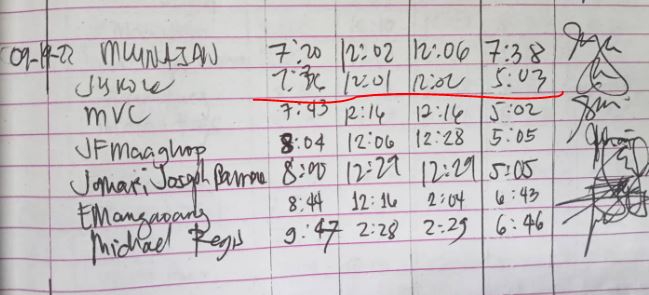 09-19-22 MUNAJAN 7:20 12:02 12:06 7:38
7:36 12:01 12:02 5:03
MVC 7:43 12:16 12:16 5:02
JFMaaghop 8:04 12:06 12:28 5:05
Jomari Joseph 8:00 12:29 12:29 5:05
EMangaoang 8:44 12:16 2:04 6:43
Michael Regis 9:47 2:28 2:29 6:46